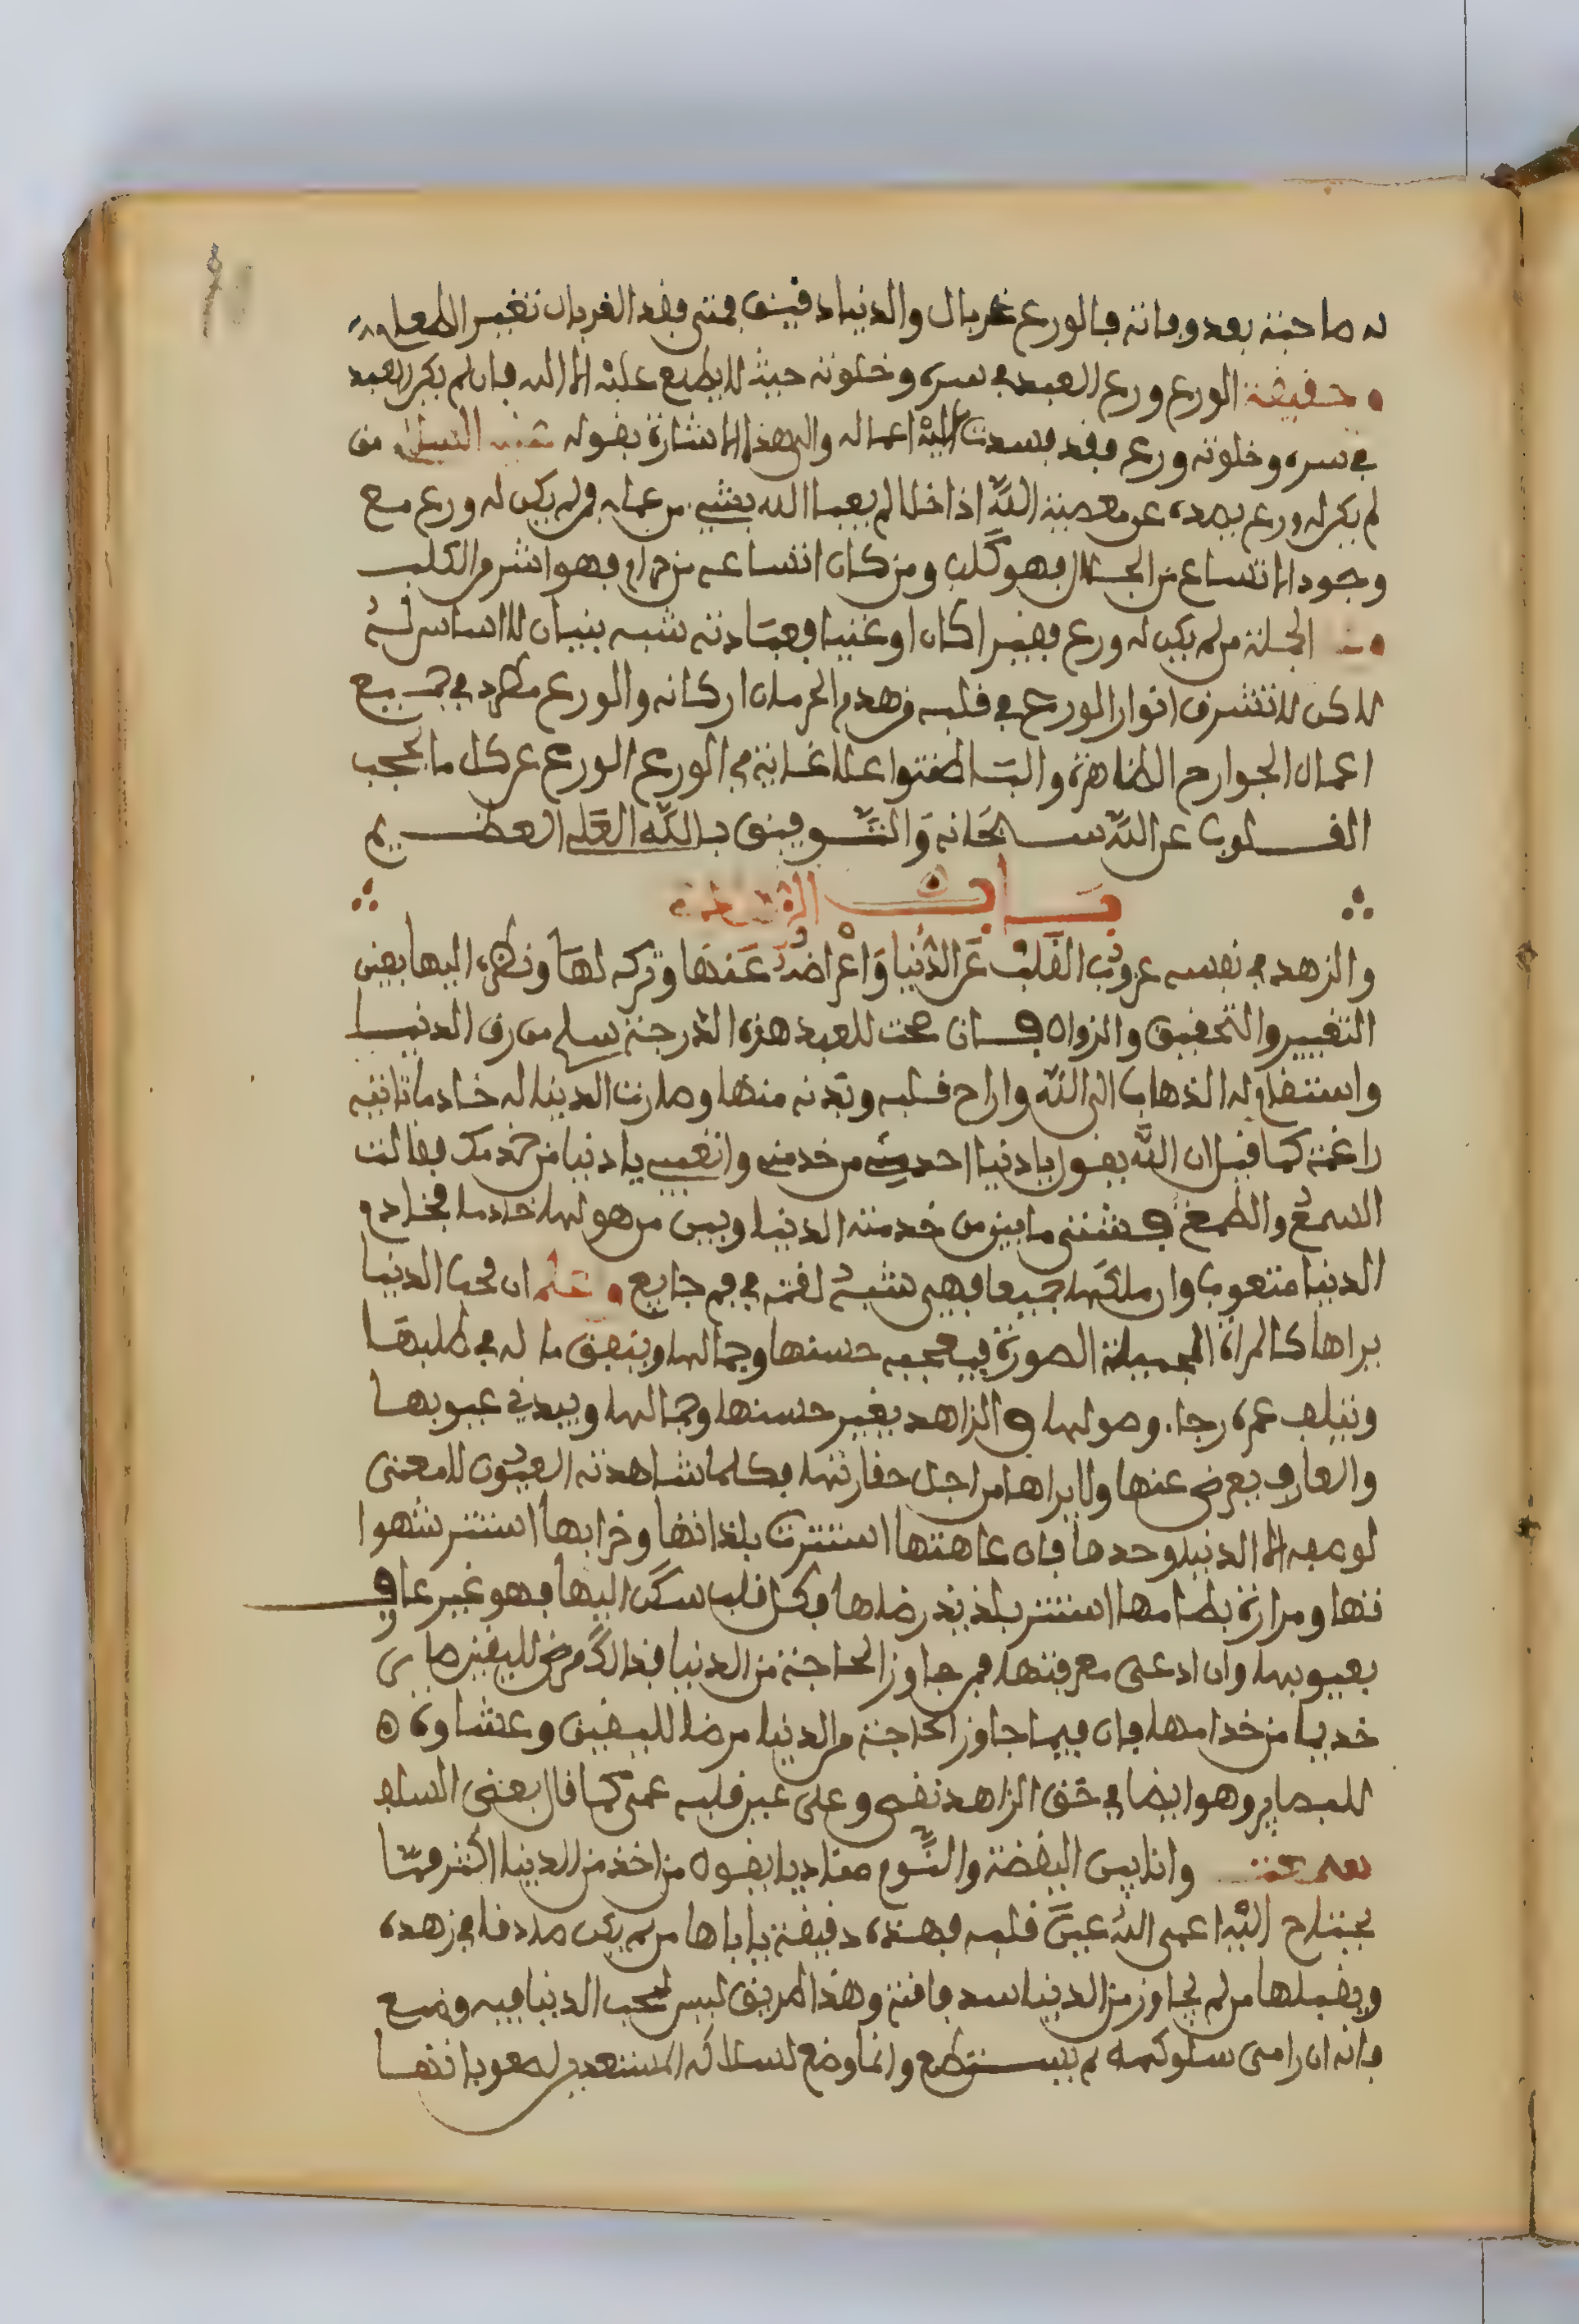 له صاحبه بعد وفاته فالورع غربال والدنيا دقيق فمتى فقد الغربال تغير الطعام
وحقيقة الورع ورع العبد في سره وخلوته حيث لا يطلع عليه الا الله فان لم يكن للعبد
في سره وخلوته ورع فقد فسدت عليه اعماله والى هذا الاشارة بقوله من
لم يكن له ورع يصده عن معصية الله اذا خلا لم يعبا الله بشيء من عمله ومن لم يكن له ورع مع
وجود الاتساع من الحلال فهو كلب ومن كان اتساعه من حرام فهو اشر من الكلب
الجملة من لم يكن له ورع فقيرا كان او غنيا فعبادته شبه بنيان لا اساس له
لاكن لا تشرق انوار الورع في قلب من هدم الحرمان اركانه والورع مطرد في جميع
اعمال الجوارح الظاهرة والباطنة وا على غاية في الورع الورع عن كل ما يحجب
القلوب عن الله سبحانه والتوفيق بالله العلي العظيم
باب
والزهد في نفسه عزوب القلب عن الدنيا واعراضه عنها وتركه لها ونظره اليها بعين
التغيير والتحقيق والزوال فان صحت للعبد هذه الدرجة سلم من رق الدنيا
واستقام له الذهاب الى الله واراح قلبه وبدنه منها وصارت الدنيا له خادما تاتيه
راغمة كما قيل ان الله يقول يا دنيا اخدمي من خدمني واتعبي يا دنيا من خدمك فقالت
السمع والطمع فشتى ما بين من خدمته الدنيا وبين من هو لها خادما فخادم
الدنيا متعوب وان ملكها جميعا فهي شبه لقمة في فم جايع واعلم ان محب الدنيا
يراها كالمراة الجميلة الصورة فيعجبه حسنها وجمالها وينفق ماله في طلبها
ويتلف عمره رجاء وصولها والزاهد يغير حسنها وجمالها ويبدي عيوبها
والعارف يعرض عنها ولا يراها من اجل حقارتها فكلما شاهدته العيون لا معنى
لوعيه الا الدنيا وحدها فان عاهتها استترت بلذاتها وخرابها استتر بشهوا
تها ومرارة بطامها استتر بلذيذ رضاها فكل قلب سكن اليها فهو غير عارف
بعيوبها وان ادعى معرفتها فمن جاوز الحاجة من الدنيا فذالك مرض لليقين صار
خديما من خدامها فان فيما جاوز الحاجة من الدنيا مرضا لليقين وغشاوة
للبصاير وهو ايضا في حق الزاهد نقص وعلى عين قلبه عمى كما قال بعض السلف
سمعت وانا بين اليقضة والنوم مناديا يقول من اخذ من الدنيا اكثر مما
يحتاج اليه اعمى الله عين قلبه فهذه دقيقة ياباها من لم يكن صادقا في زهده
ويقبلها من لم يجاوز من الدنيا سد فاقته وهذا الطريق ليس لمحب الدنيا فيه وضع
فانه ان رام سلوكه لم يستطع وانما وضع لسلاكه المستعدين لصعوباتها